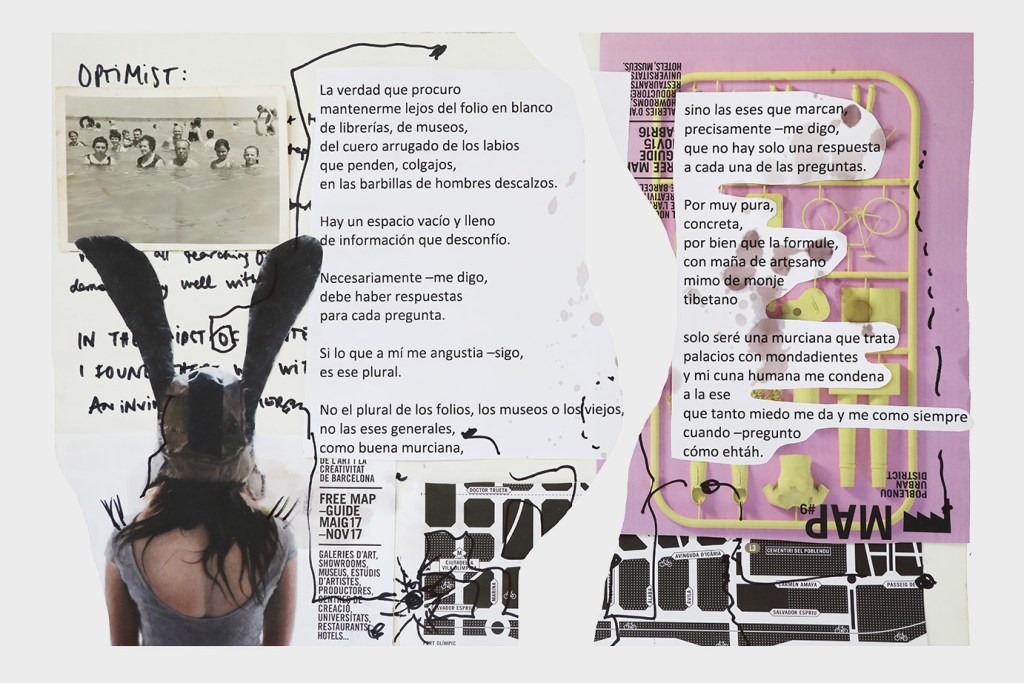 OPTIMIST:
La verdad que procuro
mantenerme lejos del folio en blanco
de librerías, de museos,
del cuero arrugado de los labios
que penden, colgajos,
en las barbillas de hombres descalzos.
Hay un espacio vacío y lleno
de información que desconfío.
Necesariamente –me digo,
debe haber respuestas
para cada pregunta.
Si lo que a mí me angustia –sigo,
es ese plural.
No el plural de los folios, los museos o los viejos,
no las eses generales,
como buena murciana,
sino las eses que marcan,
precisamente –me digo,
que no hay solo una respuesta
a cada una de las preguntas.
Por muy pura,
concreta,
por bien que la formule,
con maña de artesano
mimo de monje
tibetano
solo seré una murciana que trata
palacios con mondadientes
y mi cuna humana me condena
a la ese
que tanto miedo me da y me como siempre
cuando –pregunto
cómo ehtáh.
well with
IN THE
I FOUND
AN
DE L'ART I LA
CREATIVITAT
DE BARCELONA
FREE MAP
–GUIDE
MAIG17
–NOV17
GALERIES D'ART,
SHOWROOMS,
MUSEUS, ESTUDIS
D'ARTISTES,
PRODUCTORES,
CENTRES DE
CREACIÓ,
UNIVERSITATS,
RESTAURANTS,
HOTELS...
DOCTOR TRUETA
M
CIUTADELLA
VILA OLÍMPICA
MARINA
SALVADOR ESPRIU
PORT OLÍMPIC
HOTELS, MUSEUS.
RESTAURANTS
UNIVERSITATS
PRODUCTORES
SHOWROOMS,
GALERIES D'A
ABR16
NOV15
GUIDE
FREE MAP
POBLENOU
URBAN
DISTRICT
MAP
#9
AVINGUDA D'ICÀRIA
L3
CEMENTIRI DEL POBLENOU
CARMEN AMAYA
PASSEIG DE
ÀLABA
ÀVILA
SALVADOR ESPRIU